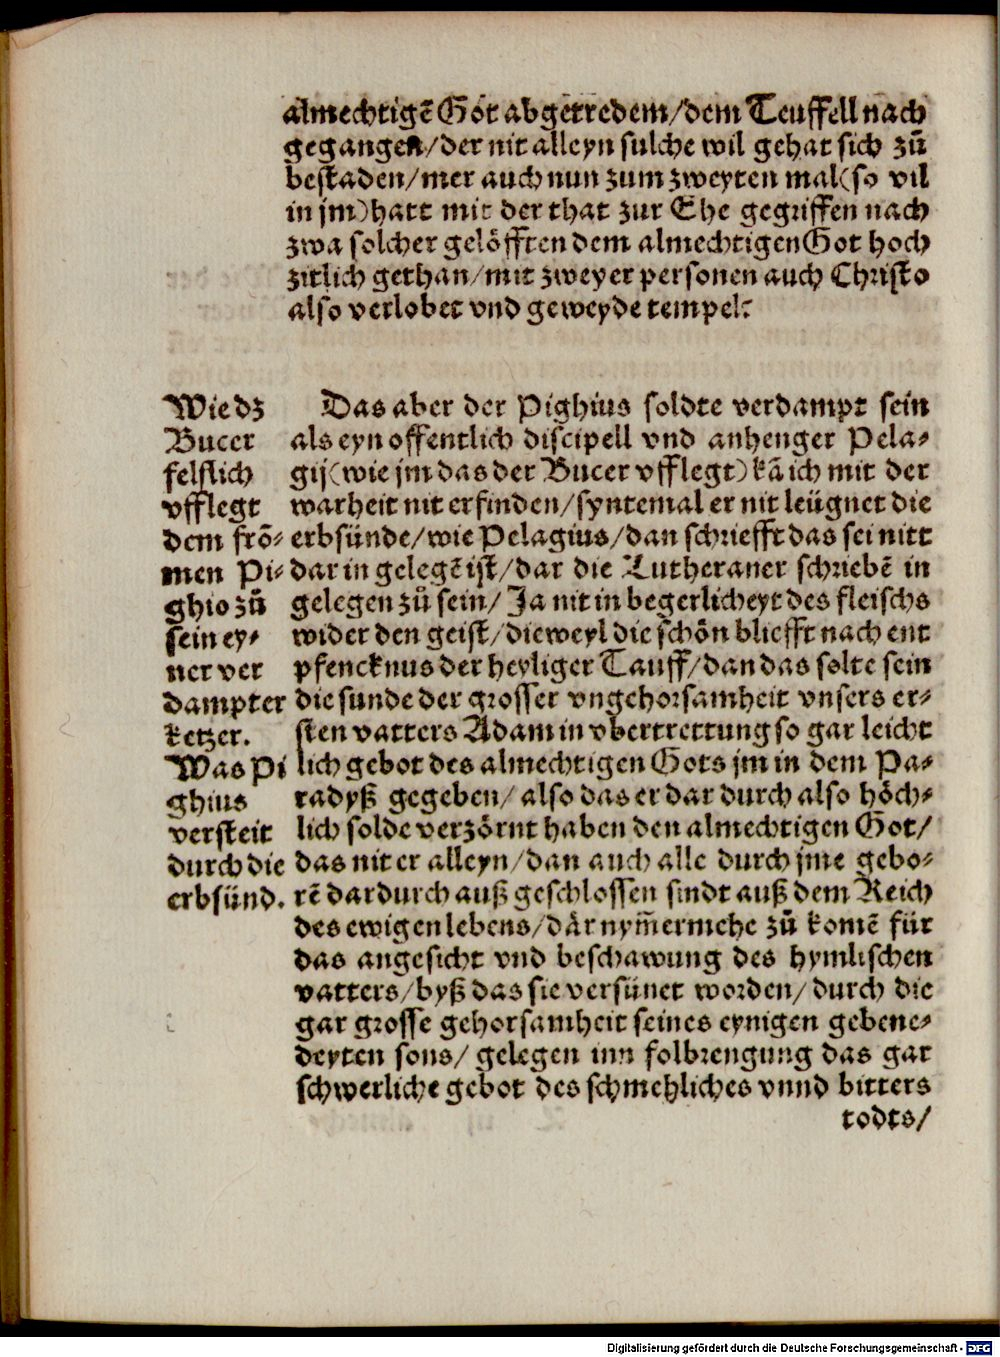 almechtigẽ Got abgetredem/dem Teuffell nach
gegangen/der nit alleyn sulche wil gehat sich zů
bestaden/mer auch nun zum zweyten mal(so vil
in jm)hatt mit der that zur Ehe gegriffen nach
zwa solcher gelöfften dem almechtigen Got hoch
zitlich gethan/mit zweyer personen auch Christo
also verlobet vnd geweyde tempel:
Wie dz
Bucer
felslich
vfflegt
dem frõ-
men Pi-
ghio zů
sein ey-
ner ver
dampter
ketzer.
Was Pi
ghius
versteit
durch die
erbsünd.
Das aber der Pighius soldte verdampt sein
als eyn offentlich discipell vnd anhenger Pela-
gij(wie jm das der Bucer vfflegt)kã ich mit der
warheit nit erfinden/syntemal er nit leügnet die
erbsünde/wie Pelagius/dan schriefft das sei nitt
dar in gelegẽ ist/dar die Lutheraner schriebẽ in
gelegen zů sein/ Ja nit in begerlicheyt des fleischs
wider den geist/dieweyl die schön bliefft nach ent
pfencknus der heyliger Tauff/dan das solte sein
die sunde der grosser vngehorsamheit vnsers er-
sten vatters Adam in vbertrettung so gar leicht
lich gebot des almechtigen Gots jm in dem Pa-
radyß gegeben/ also das er dar durch also höch-
lich solde verzörnt haben den almechtigen Got/
das nit er alleyn/dan auch alle durch jme gebo-
rẽ dardurch auß geschlossen sindt auß dem Reich
des ewigen lebens/där nym̃ermehe zů komẽ für
das angesicht vnd beschawung des hymlischen
vatters/byß das sie versünet worden/durch die
gar grosse gehorsamheit seines eynigen gebene-
deyten sons/ gelegen inn folbrengung das gar
schwerliche gebot des schmehliches vnnd bitters
todts/
Digitalisierung gefördert durch die Deutsche Forschungsgemeinschaft - DFG